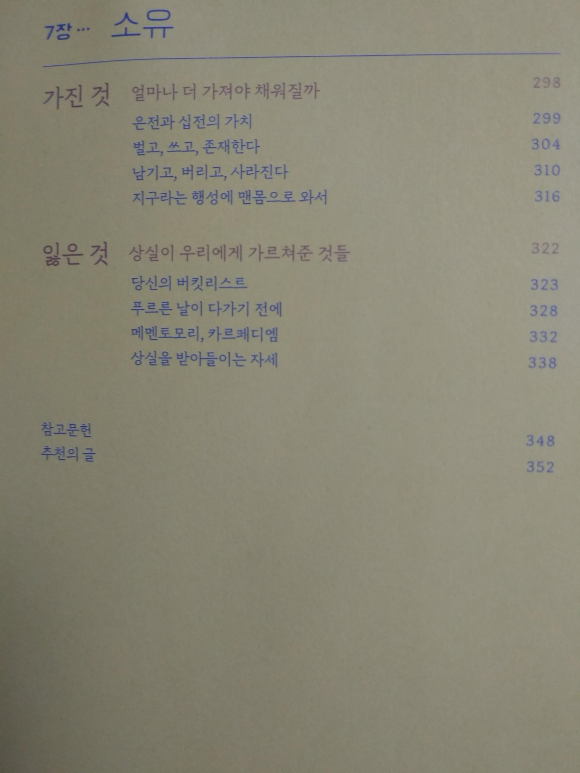 7장… 소유
가진 것 얼마나 더 가져야 채워질까 298
은전과 십전의 가치 299
벌고, 쓰고, 존재한다 304
남기고, 버리고, 사라진다 310
지구라는 행성에 맨몸으로 와서 316
잃은 것 상실이 우리에게 가르쳐준 것들 322
당신의 버킷리스트 323
푸르른 날이 다가기 전에 328
메멘토모리, 카르페디엠 332
상실을 받아들이는 자세 338
참고문헌 348
추천의 글 352